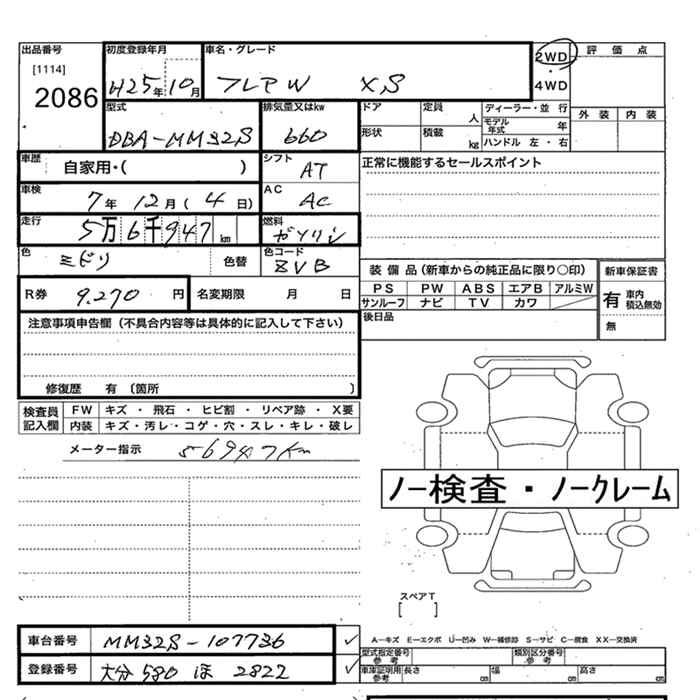 出品番号 初度登録年月 車名・グレード 2WD 評価点
[1114] 2086 H25年10月 フレアW XS ・ 4WD 外装 内装
型式 排気量又はkw ドア 定員 人 ディーラー・並 行
DBA-MM32S 660 形状 積載 kg モデル年式 年 ハンドル 左・右
車歴 自家用・( ) シフト AT 正常に機能するセールスポイント
車検 7年 12月 ( 4日) AC AC
走行 5万6千947km 燃料 ガソリン
色 ミドリ 色替 色コード ZVB
装備品(新車からの純正品に限り○印) 新車保証書
R券 9,270円 名変期限 月 日 PS PW ABS エアB アルミW 有 車内積込無効
サンルーフ ナビ TV カワ
注意事項申告欄(不具合内容等は具体的に記入して下さい) 後日品 無
修復歴 有 〔箇所 〕
検査員記入欄 FW キズ・飛石・ヒビ割・リペア跡・X要
内装 キズ・汚レ・コゲ・穴・スレ・キレ・破レ
メーター指示 56947km
ノー検査・ノークレーム
スペアT
[ ]
車台番号 MM32S-107736 ✓ A−キズ E−エクボ U−凹み W−補修跡 S−サビ C−腐食 XX−交換済
型式指定番号 参考 類別区分番号 参考
登録番号 大分 580 ほ 2822 ✓ 車庫証明用 参考 長さ cm 幅 cm 高さ cm